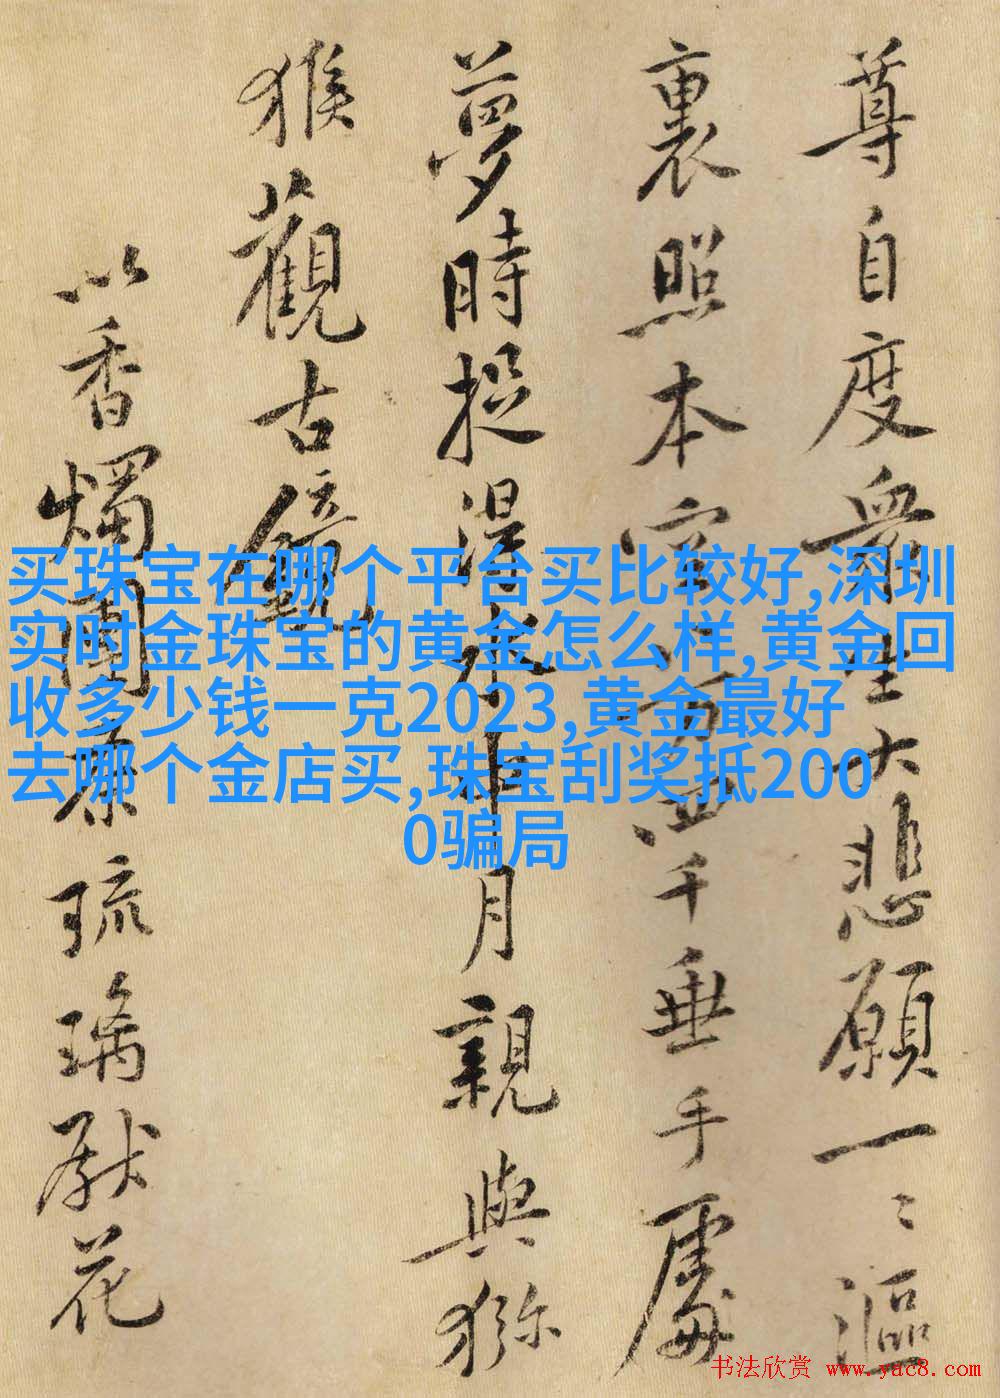 尊自度衆生大悲願一〻漚
裏照本空万四千垂手處
夢時捉得水中月親與獼
猴觀古鏡
以香燭團康琉璃獻花
买珠宝在哪个平台买比较好,深圳
实时金珠宝的黄金怎么样,黄金回
收多少钱一克2023,黄金最好
去哪个金店买,珠宝刮奖抵200
0骗局
书法欣赏 www.yac8.com